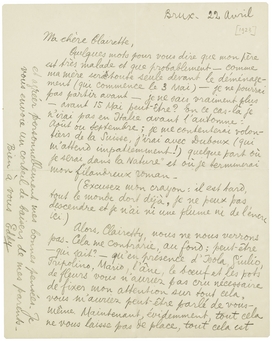 Brux. 22 Avril
Ma chère Clairette,
Quelques mots pour vous dire que mon père
est très malade et que probablement – comme
ma mère sera toute seule devant le déménage-
ment (qui commence le 3 Mai) – je ne pourrai
pas partir avant – je ne sais vraiment plus –
avant 15 Mai peut-être? En ce cas-là je
n'irai pas en Italie avant l'automne.
Août ou septembre; je me contenterai volon-
tiers de la Suisse, j'irai avec
m'attend impatiemment!) quelque part où
je serai dans la Nature et où je terminerai
mon filandreux roman.
(Excusez mon crayon: il est tard,
tout le monde dort déjà, je ne peux pas
descendre et je n'ai ni une plume ni de l'encre
ici.)
Alors, Clairette, nous ne nous verrons
pas. Cela me contrarie, au fond; peut-être
– qui sait? – qu'en présence d'Isola, Giulio,
Tripolino, Mario, l'âne, le bœuf et les pots
de fleurs vous n'auriez pas cru nécessaire
de fixer mon attention sur tout cela,
vous m'auriez peut-être parlé de vous-
même. Maintenant, évidemment, tout cela
ne vous laisse pas de place, tout cela est
et crier personnellement mes bonnes pensées. Je
vous envoie un conseil de
Bien à vous